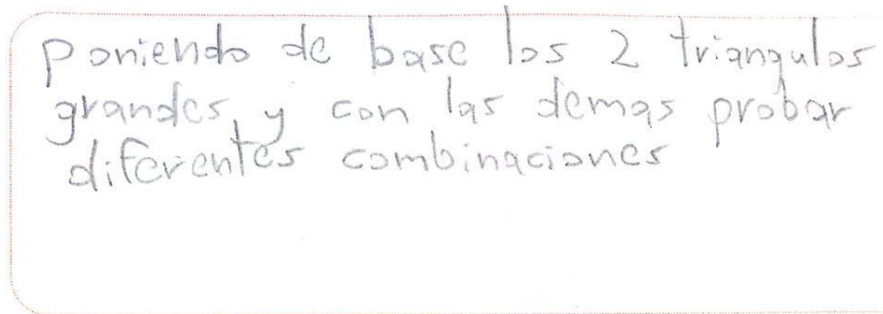 Poniendo de base los 2 triangulos
grandes, y con las demas probar
diferentes combinaciones